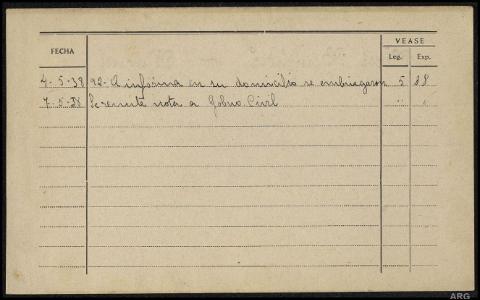 VEASE
FECHA
Leg. Exp.
4-5-38 92-A informa en su domicilio se embriagaron 5 28
7-5-38 Se remite nota a Gobno. Civil " "
ARG